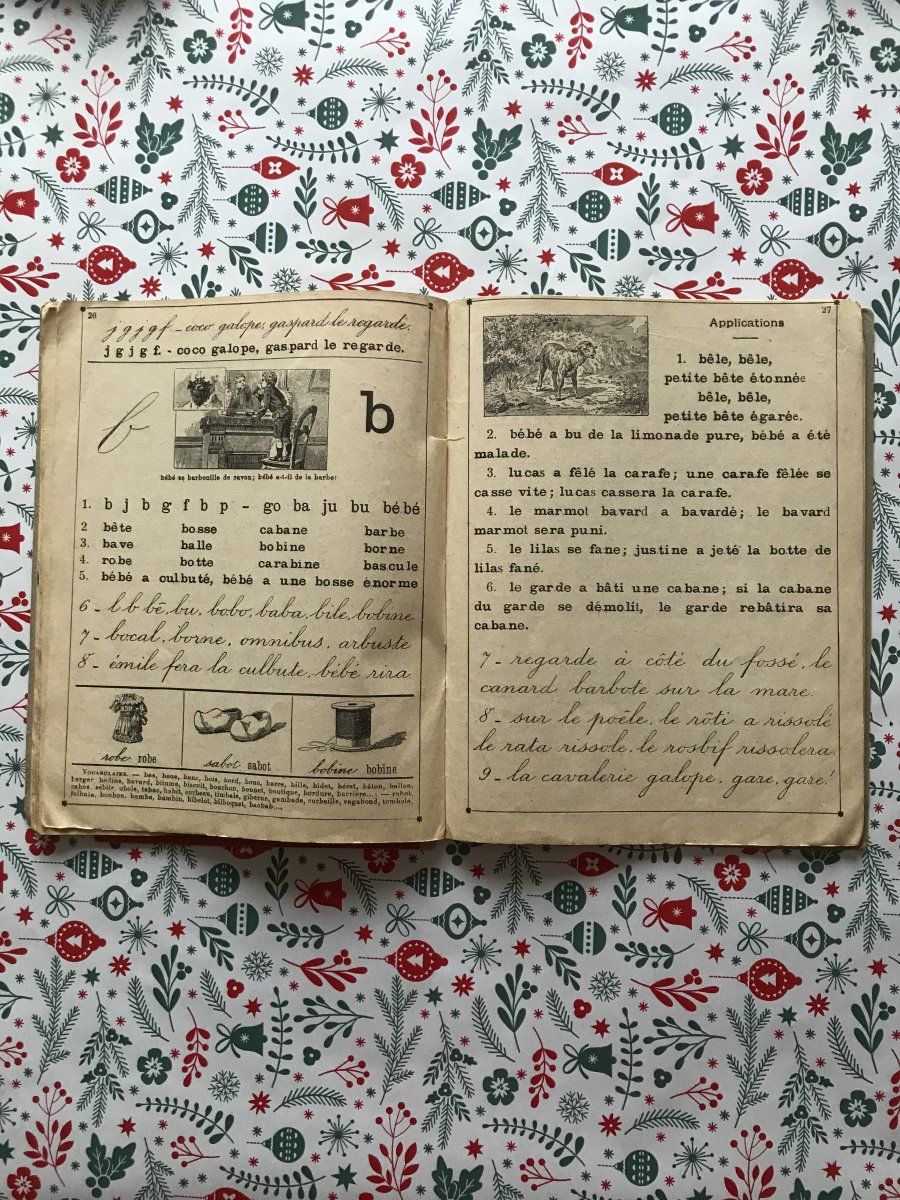 26
j g j g f. - coco galope, gaspard le regarde.
j g j g f. - coco galope, gaspard le regarde.
b b
bébé se barbouille de savon; bébé a-t-il de la barbe?
1. b j b g f b p - go ba ju bu bébé
2 bête bosse cabane barbe
3. bave balle bobine borne
4. robe botte carabine bascule
5. bébé a culbuté, bébé a une bosse énorme
6 - b b bé, bu, bobo, baba, bile, bobine
7 - bocal, borne, omnibus, arbuste
8 - émile fera la culbute, bébé rira
robe robe
sabot sabot
bobine bobine
VOCABULAIRE. — bas, boue, banc, bois, bord, houe, barre, bille, bidet, béret, bâton, ballon,
berger, badine, bavard, bitume, biscuit, bouchon, bonnet, boutique, bordure, barrière...; — rabot,
cabas, sébile, obole, tabac, habit, corbeau, timbale, giberne, gambade, corbeille, vagabond, tombola,
falbala, bonbon, bombe, bambin, bibelot, bilboquet, baobab...,
27
Applications
1. bêle, bêle,
petite bête étonnée
bêle, bêle,
petite bête égarée.
2. bébé a bu de la limonade pure, bébé a été
malade.
3. lucas a fêlé la carafe; une carafe fêlée se
casse vite; lucas cassera la carafe.
4. le marmot bavard a bavardé; le bavard
marmot sera puni.
5. le lilas se fane; justine a jeté la botte de
lilas fané.
6. le garde a bâti une cabane; si la cabane
du garde se démolit, le garde rebâtira sa
cabane.
7 - regarde à côté du fossé, le
canard barbote sur la mare.
8 - sur le poêle, le rôti a rissolé
le rata rissole, le rosbif rissolera.
9 - la cavalerie galope, gare, gare!